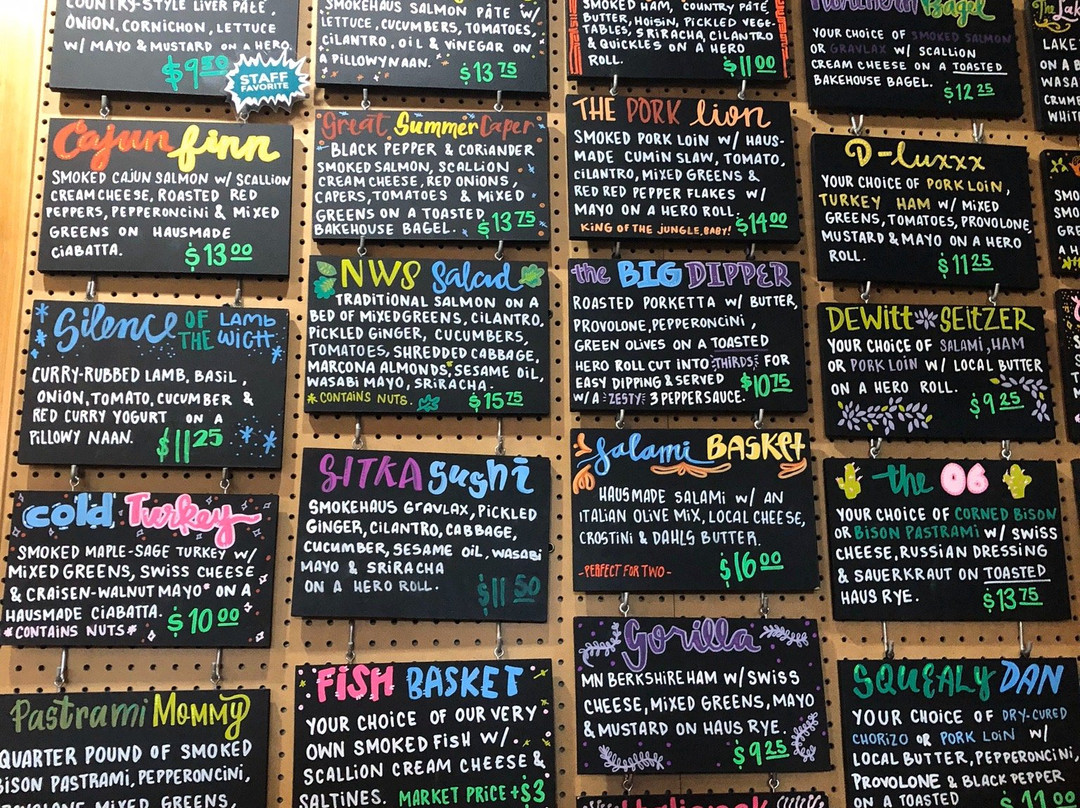 COUNTRY-STYLE LIVER PÂTÉ,
ONION, CORNICHON, LETTUCE
W/ MAYO & MUSTARD ON A HERO.
$9.50
STAFF
FAVORITE
Cajun finn
SMOKED CAJUN SALMON W/ SCALLION
CREAM CHEESE, ROASTED RED
PEPPERS, PEPPERONCINI & MIXED
GREENS ON HAUSMADE
CIABATTA.
$13.00
Silence OF THE LAMB WICH
CURRY-RUBBED LAMB, BASIL,
ONION, TOMATO, CUCUMBER &
RED CURRY YOGURT ON A
PILLOWY NAAN.
$11.25
cold Turkey
SMOKED MAPLE-SAGE TURKEY W/
MIXED GREENS, SWISS CHEESE
& CRAISEN-WALNUT MAYO* ON A
HAUSMADE CIABATTA.
$10.00
*CONTAINS NUTS*
Pastrami Mommy
QUARTER POUND OF SMOKED
BISON PASTRAMI, PEPPERONCINI,
MIXED GREENS,
SMOKEHAUS SALMON PÂTÉ W/
LETTUCE, CUCUMBERS, TOMATOES,
CILANTRO, OIL & VINEGAR ON
A PILLOWY NAAN.
$13.75
Great Summer Caper
BLACK PEPPER & CORIANDER
SMOKED SALMON, SCALLION
CREAM CHEESE, RED ONIONS,
CAPERS, TOMATOES & MIXED
GREENS ON A TOASTED
BAKEHOUSE BAGEL.
$13.75
NWS Salad
TRADITIONAL SALMON ON A
BED OF MIXED GREENS, CILANTRO,
PICKLED GINGER, CUCUMBERS,
TOMATOES, SHREDDED CABBAGE,
MARCONA ALMONDS*, SESAME OIL,
WASABI MAYO, SRIRACHA.
*CONTAINS NUTS.
$15.75
SITKA sushi
SMOKEHAUS GRAVLAX, PICKLED
GINGER, CILANTRO, CABBAGE,
CUCUMBER, SESAME OIL, WASABI
MAYO & SRIRACHA
ON A HERO ROLL.
$11.50
FISH BASKET
YOUR CHOICE OF OUR VERY
OWN SMOKED FISH W/
SCALLION CREAM CHEESE &
SALTINES. MARKET PRICE + $3
SMOKED HAM, COUNTRY PÂTÉ,
BUTTER, HOISIN, PICKLED VEGE-
TABLES, SRIRACHA, CILANTRO
& QUICKLES ON A HERO
ROLL.
$11.00
THE PORK lion
SMOKED PORK LOIN W/ HAUS-
MADE CUMIN SLAW, TOMATO,
CILANTRO, MIXED GREENS &
RED RED PEPPER FLAKES W/
MAYO ON A HERO ROLL.
KING OF THE JUNGLE, BABY!
$14.00
the BIG DIPPER
ROASTED PORKETTA W/ BUTTER,
PROVOLONE, PEPPERONCINI,
GREEN OLIVES ON A TOASTED
HERO ROLL CUT INTO THIRDS FOR
EASY DIPPING & SERVED
W/ A ZESTY 3 PEPPER SAUCE.
$10.75
Salami BASKET
HAUSMADE SALAMI W/ AN
ITALIAN OLIVE MIX, LOCAL CHEESE,
CROSTINI & DAHLS BUTTER.
-PERFECT FOR TWO-
$16.00
Gorilla
MN BERKSHIRE HAM W/ SWISS
CHEESE, MIXED GREENS, MAYO
& MUSTARD ON HAUS RYE.
$9.25
Northern Bagel
YOUR CHOICE OF SMOKED SALMON
OR GRAVLAX W/ SCALLION
CREAM CHEESE ON A TOASTED
BAKEHOUSE BAGEL.
$12.25
D-luxxx
YOUR CHOICE OF PORK LOIN,
TURKEY HAM W/ MIXED
GREENS, TOMATOES, PROVOLONE,
MUSTARD & MAYO ON A HERO
ROLL.
$11.25
DEWITT SEITZER
YOUR CHOICE OF SALAMI, HAM
OR PORK LOIN W/ LOCAL BUTTER
ON A HERO ROLL.
$9.25
the 06
YOUR CHOICE OF CORNED BISON
OR BISON PASTRAMI W/ SWISS
CHEESE, RUSSIAN DRESSING
& SAUERKRAUT ON TOASTED
HAUS RYE.
$13.75
SQUEALY DAN
YOUR CHOICE OF DRY-CURED
CHORIZO OR PORK LOIN W/
LOCAL BUTTER, PEPPERONCINI,
PROVOLONE & BLACK PEPPER
ON A TOASTED
11.00
The Lak
LAKE
ON A B
WASA
CRUME
WHIT